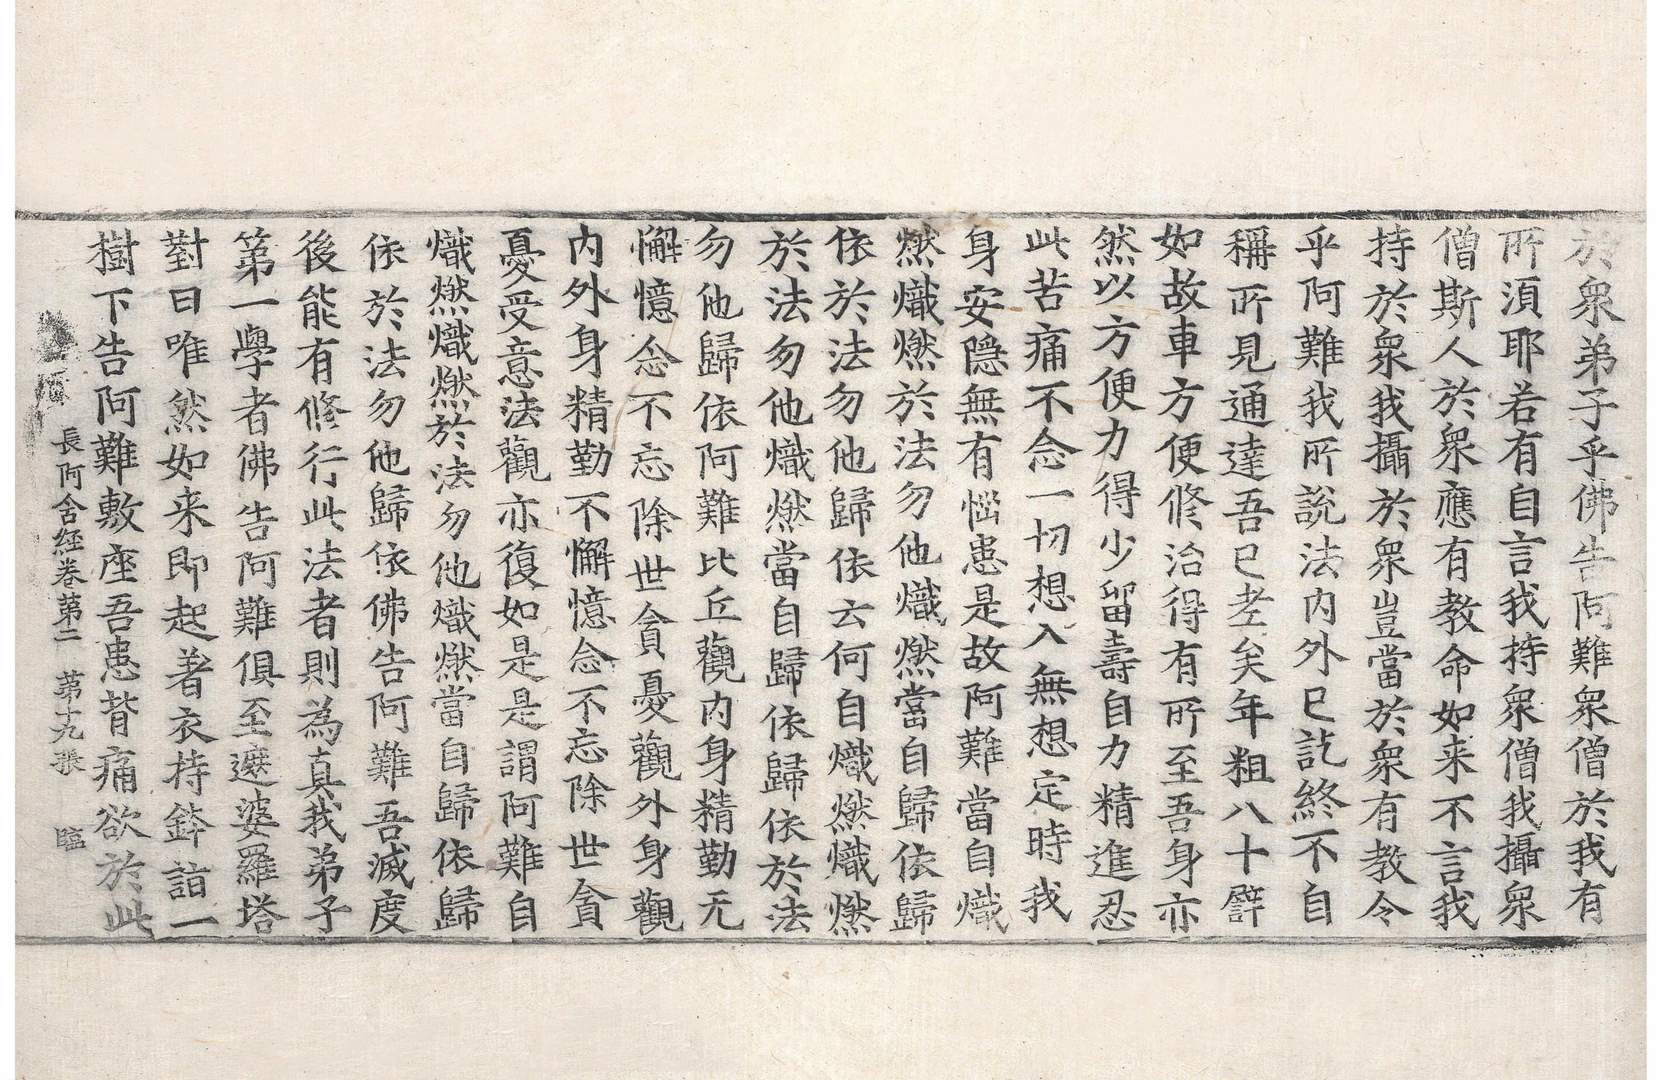 於衆弟子乎佛告阿難衆僧於我有
所湏耶若有自言我持衆僧我攝衆
僧斯人於衆應有教命如来不言我
持於衆我攝於衆豈當於衆有教令
乎阿難我所說法内外已訖終不自
稱所見通達吾已老矣年粗八十譬
如故車方便修治得有所至吾身亦
然以方便力得少留壽自力精進忍
此苦痛不念一切想入無想定時我
身安隱無有惱患是故阿難當自熾
燃熾燃於法勿他熾燃當自歸依歸
依於法勿他歸依云何自熾燃熾燃
於法勿他熾燃當自歸依歸依於法
勿他歸依阿難比丘觀内身精勤无
懈憶念不忘除世貪憂觀外身觀
内外身精勤不懈憶念不忘除世貪
憂受意法觀亦復如是是謂阿難自
熾燃熾燃於法勿他熾燃當自歸依歸
依於法勿他歸依佛告阿難吾滅度
後能有修行此法者則為真我弟子
第一學者佛告阿難俱至遮婆羅塔
對曰唯然如来即起著衣持鉢詣一
樹下告阿難敷座吾患背痛欲於此
長阿含経卷第二 第十九張 臨